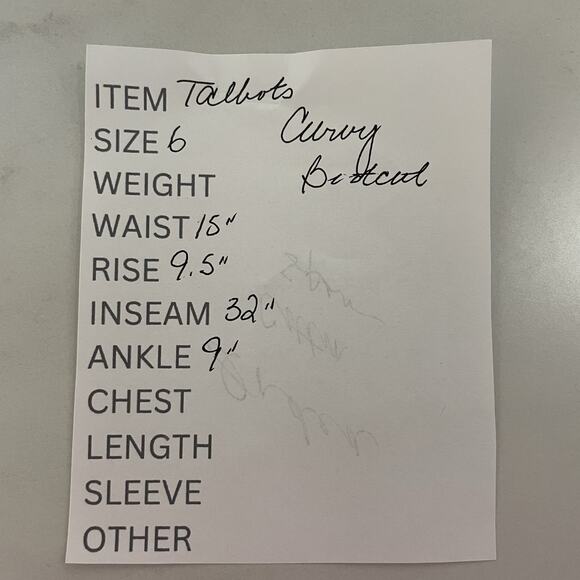 ITEM Talbots
SIZE 6 Curvy
WEIGHT Bootcut
WAIST 15"
RISE 9.5"
INSEAM 32"
ANKLE 9"
CHEST
LENGTH
SLEEVE
OTHER